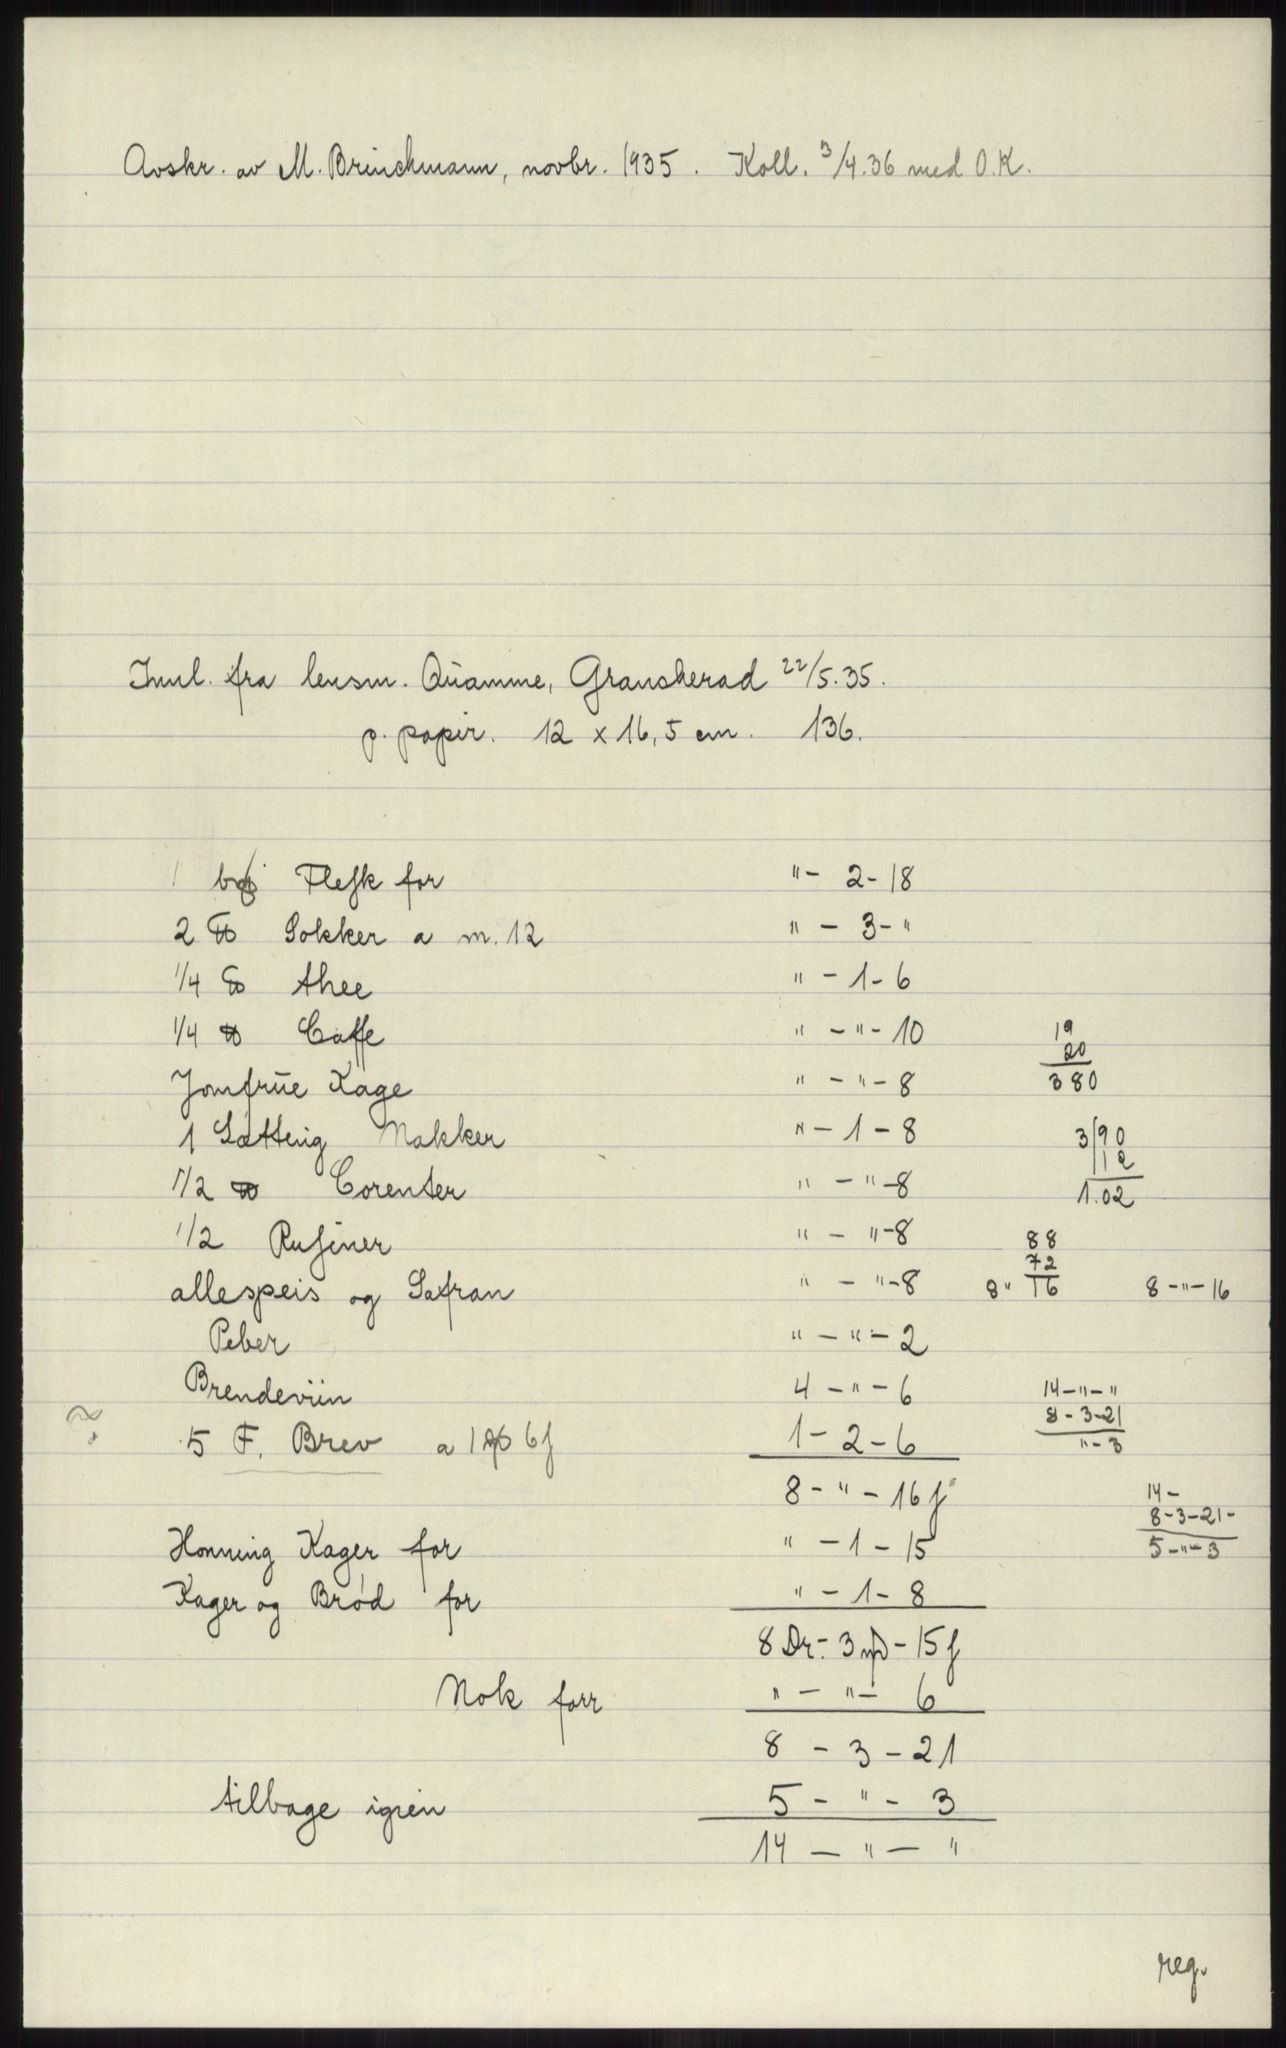 Avskr. av M. Brinchmann, novbr. 1935. Koll. 3/4.36 med O.K.
Innl. fra lensm. Quamme, Gransherad 22/5.35.
p. papir. 12 x 16,5 cm. 136.
1 Flesk for " - 2 - 18
2 ℔ Sokker a m. 12 " - 3 - "
1/4 ℔ thee " - 1 - 6
1/4 ℔ Caffe " - " - 10
19
20
380
Jomfrue Kage " - " - 8
1 Sætting Nakker " - 1 - 8
3/90
12
1.02
1/2 ℔ Corenter " - " - 8
1/2 Rusiner " - " - 8
88
72
8 " 16
8 - " - 16
allespeis og Safran " - " - 8
Peber " - " - 2
Brendeviin 4 - " - 6
14 - " - "
8 - 3 - 21
" - 3
? 5 F. Brev a 1 6 1 - 2 - 6
8 - " - 16 ſ
14 -
8 - 3 - 21 -
5 - " - 3
Honning Kager for " - 1 - 15
Kager og Brød for " - 1 - 8
8 Dr. - 3 - 15 ſ
Nok forr " - " - 6
8 - 3 - 21
tilbage igien 5 - " - 3
14 - " - "
reg.